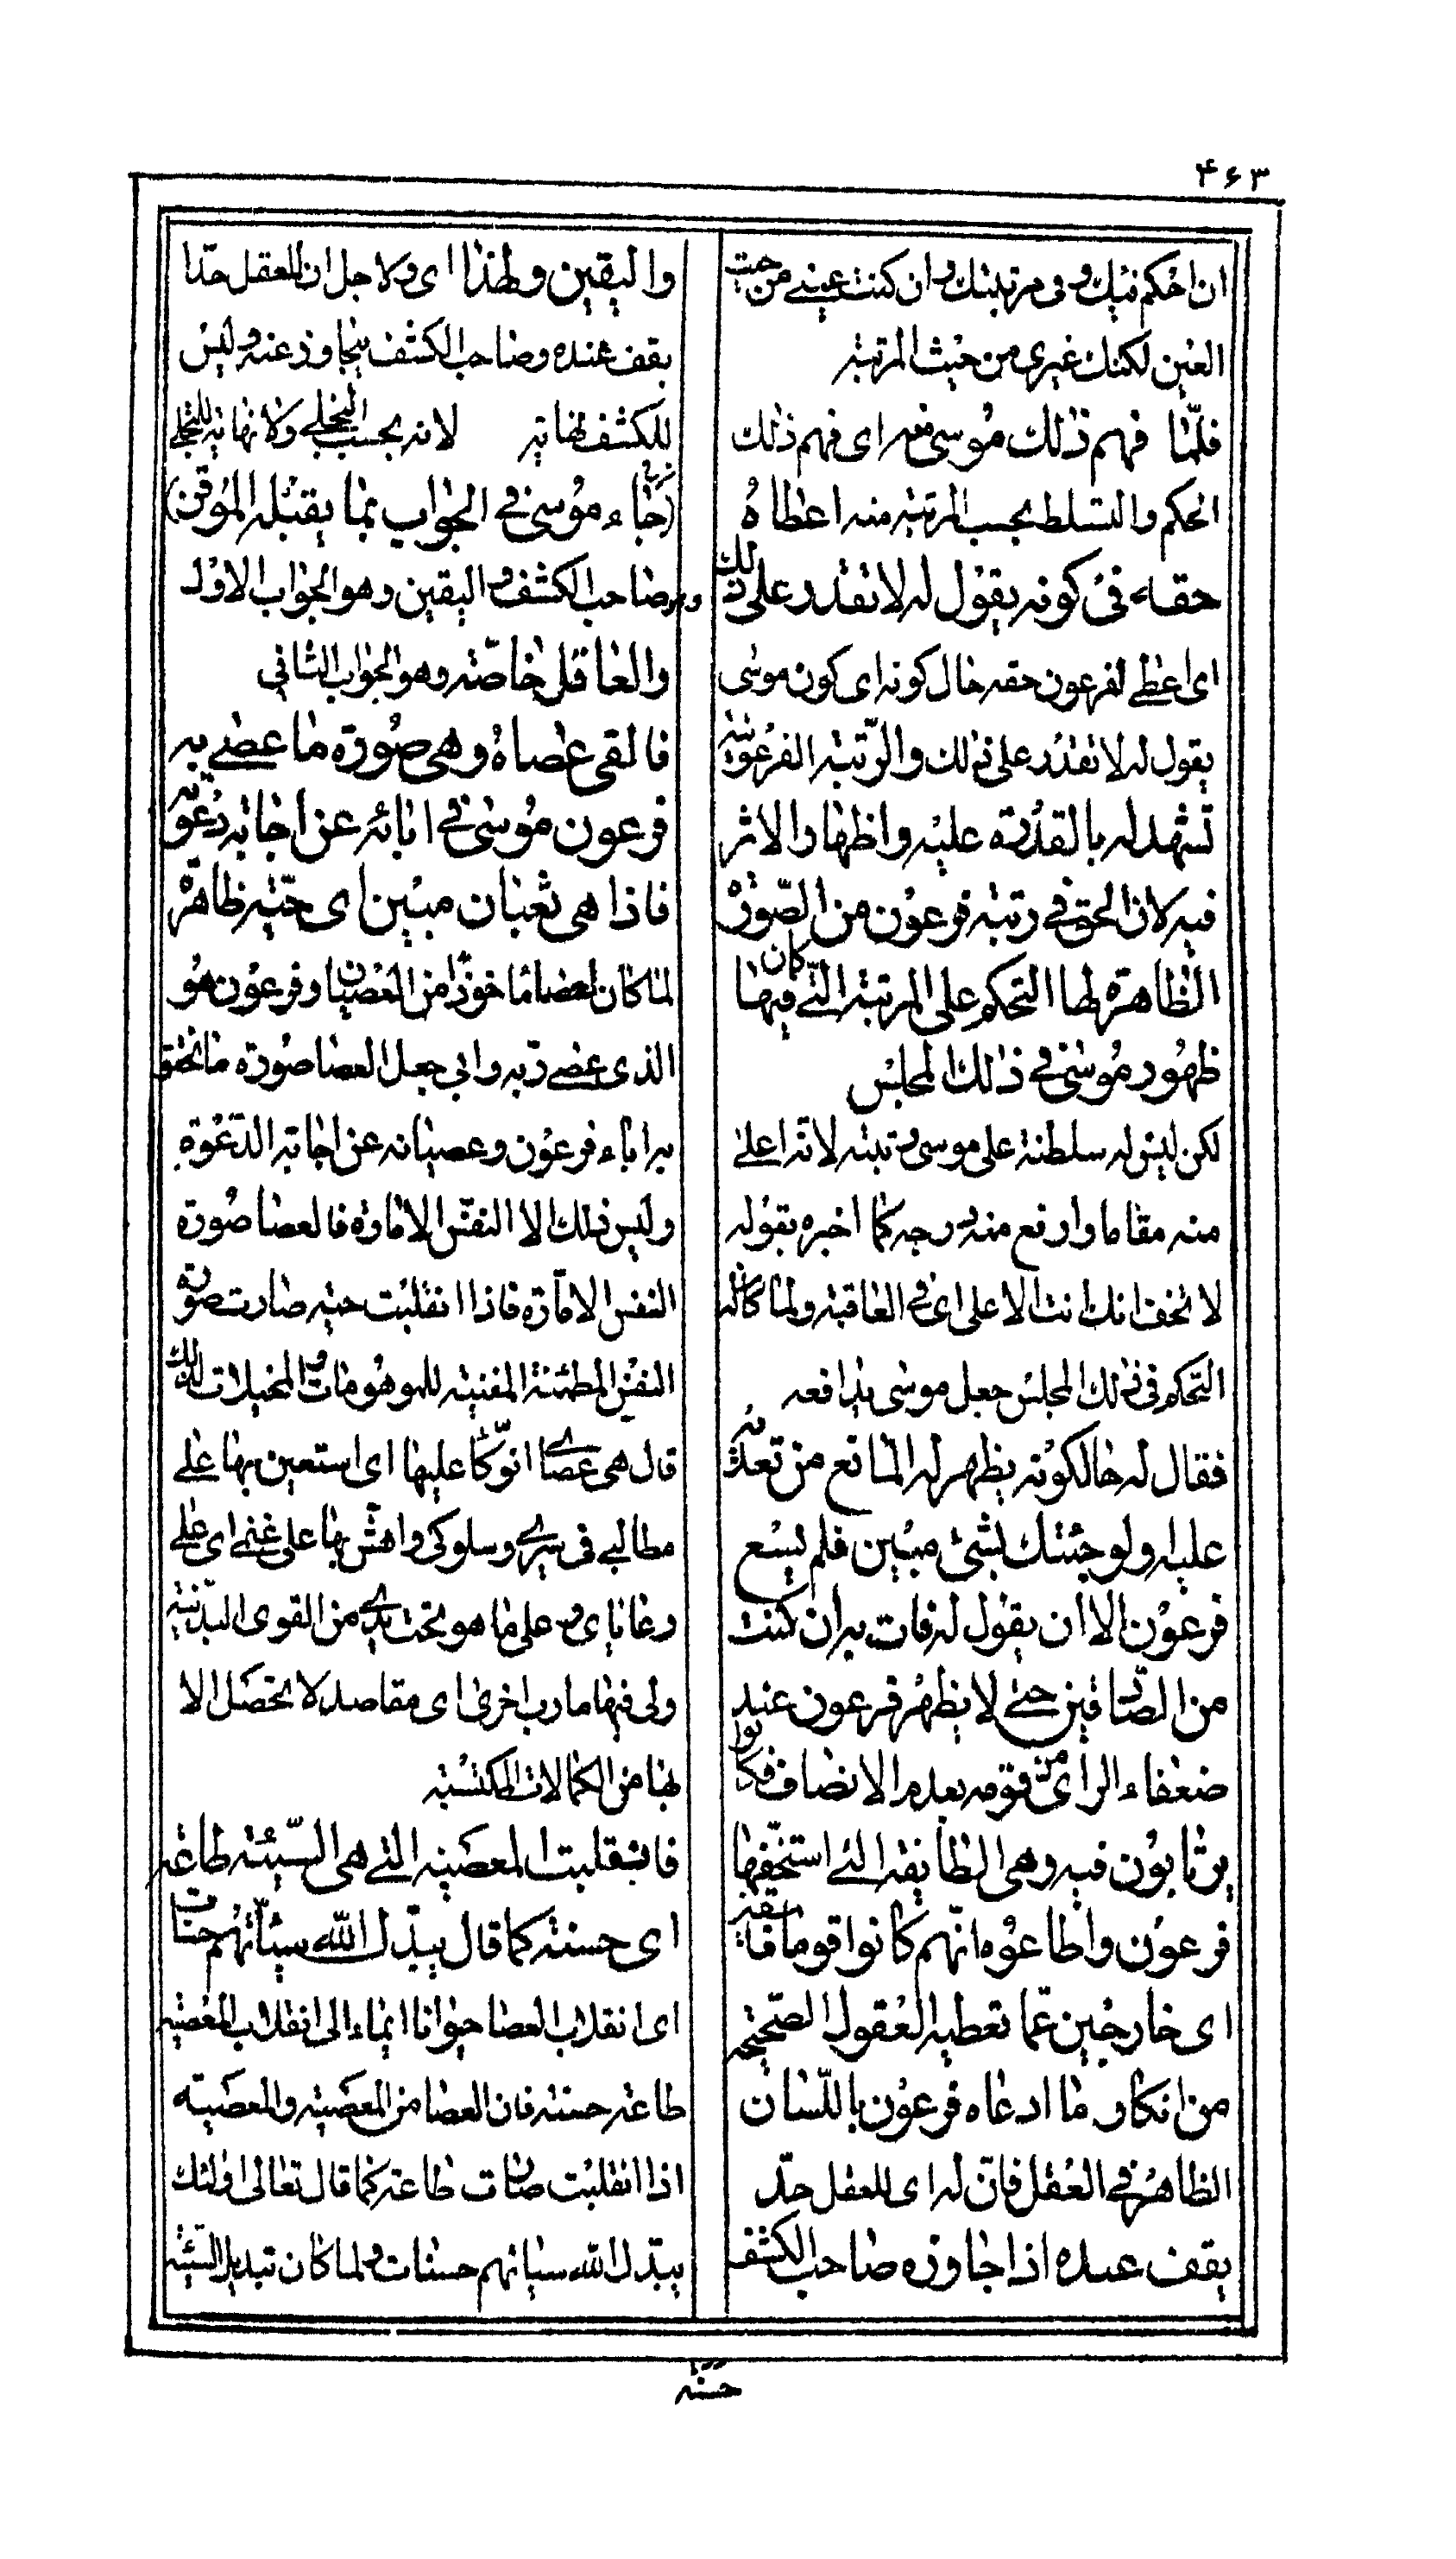 ۴۶۳
ان احكم فيك و فى مرتبتك و ان كنت عينى من حيث
العين لكنك غيرى من حيث المرتبة
فلمّا فهم ذلك موسى منه اى فهم ذلك
الحكم والتسلط بحسب المرتبة منه اعطاهُ
حقه فى كونه يقول له لا تقدر على ذلك
اى اعطى لفرعون حقه حال كونه اى كون موسى
يقول له لا تقدر على ذلك والرّتبة الفرعونية
تشهد له بالقدرة عليه واظهار الاثر
فيه لان الحق فى رتبة فرعون من الصّورة
الظاهرة لها التحكم على المرتبة التى كان فيها
ظهور موسى فى ذلك المجلس
لكن ليس له سلطنة على موسى و رتبته لانّه اعلى
منه مقاما وارفع منه درجه كما اخبره بقوله
لا تخف انك انت الاعلى اى فى العاقبة ولما كان له
التحكم فى ذلك المجلس جعل موسى يدافعه
فقال له حال كونه يظهر له المانع من تعدّيه
عليه ولو جئتك بشئ مبين فلم يسع
فرعون الا ان يقول له فات به ان كنت
من الصّادقين حتى لا يظهر فرعون عند
ضعفاء الراى من قومه بعدم الانصاف فكانوا
يرتابون فيه وهى الطائفة التى استخفها
فرعون واطاعوه انّهم كانوا قوما فاسقين
اى خارجين عمّا تعطيه العقول الصّحيحة
من انكار ما ادعاه فرعون باللّسان
الظاهر فى العقل فانّ له اى للعقل حدّ
يقف عنده اذا جاوزه صاحب الكشف
واليقين ولهذا اى ولاجل ان للعقل حدّا
يقف عنده وصاحب الكشف يتجاوز عنه وليس
للكشف نهاية لانه بحسب التجلى ولا نهاية للتجلى
(جاء موسى فى الجواب بما يقبله الموقن)
وهو صاحب الكشف و اليقين وهو الجواب الاول
والعاقل خاصّة وهو الجواب الثانى
فالقى عصاهُ وهى صورة ما عصى به
فرعون موسى فى ابائه عن اجابة دعوته
فاذا هى ثعبان مبين اى حيّة ظاهرة
لما كان العصا ماخوذا من العصيان وفرعون هو
الذى عصى ربه وابى جعل العصا صورة ما تحقق
به اباء فرعون وعصيانه عن اجابة الدّعوة
وليس ذلك الا النفس الامارة فالعصا صورة
النفس الامّارة فاذا انقلبت حية صارت صورة
النفس المطمئنة المفنية للموهومات و المخيلات لذلك
قال هى عصاى اتوكّا عليها اى استعين بها على
مطالبى فى سيرى وسلوكى واهشّ بها على غنمى اى على
رعاياى و على ما هو تحت يدى من القوى البدنية
ولى فيها مارب اخرى اى مقاصد لا تحصل الا
بها من الكمالات المكتسبة
فانقلبت المعصية التى هى السّيئة طاعة
اى حسنة كما قال يبدّل الله سيّاتهم حسنات
اى انقلاب العصا حيوانا ايماء الى انقلاب المعصية
طاعة حسنة فان العصا من المعصية والمعصية
اذا انقلبت صارت طاعة كما قال تعالى اولئك
يبدّل الله سياتهم حسنات و لما كان تبديل السيّئة
حسنة